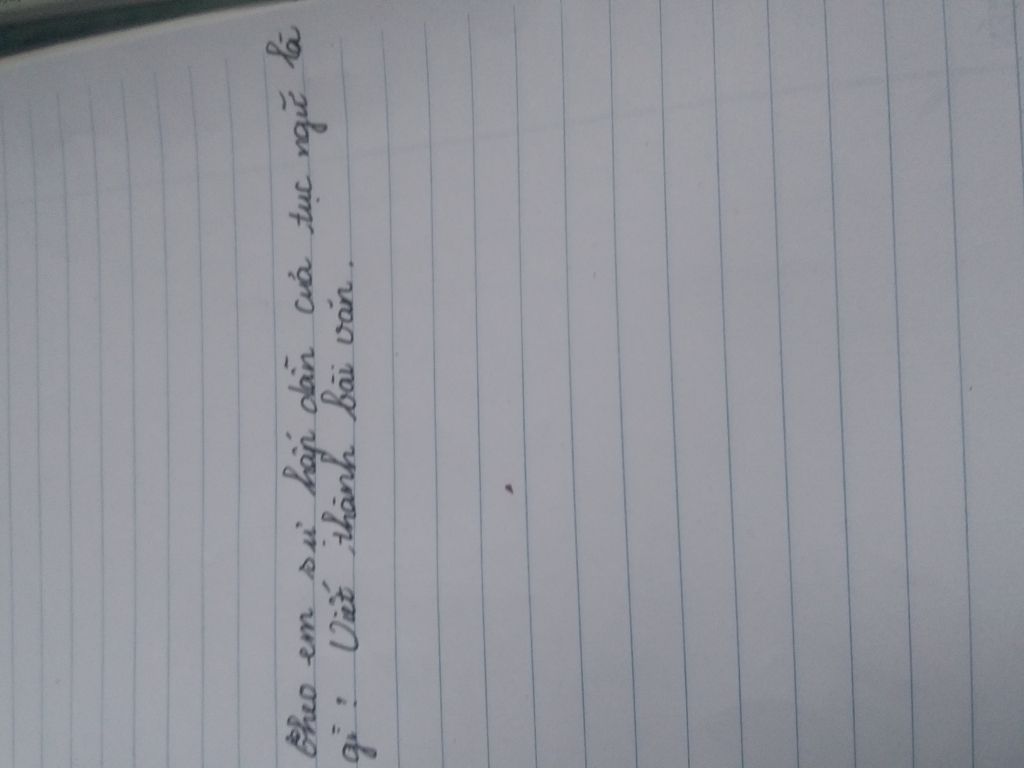 Theo em sự hấp dẫn của tục ngữ là
gì? Viết thành bài văn.